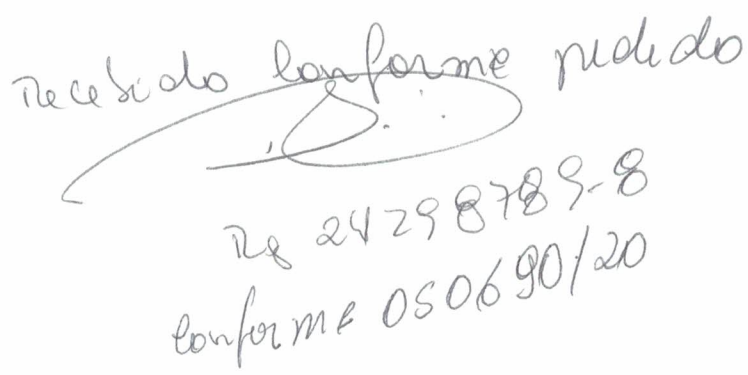 Recebido conforme pedido
Rg 24298789-8
conforme 050690/20